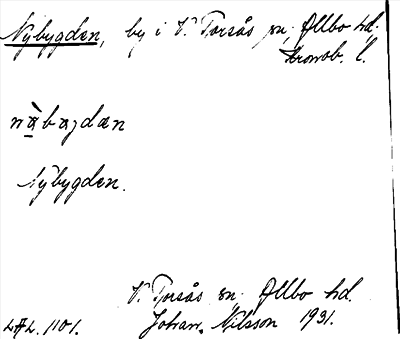 Nybygden, by i V. Torsås sn, Allbo hd.
Kronob. l.
nàbazdan
Nybygden.
V. Torsås sn, Allbo hd.
LAL. 1101. Johan Nilsson 1931.